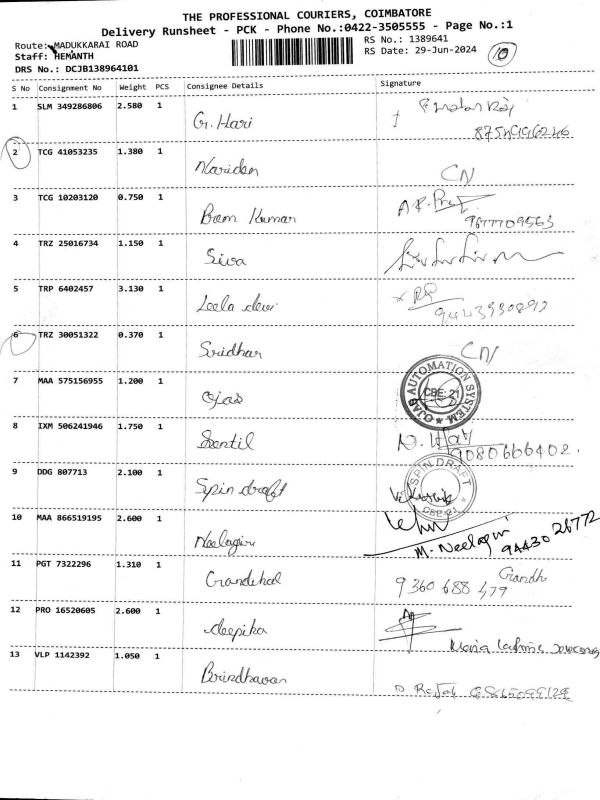 THE PROFESSIONAL COURIERS, COIMBATORE
Delivery Runsheet - PCK - Phone No.:0422-3505555 - Page No.:1
Route: MADUKKARAI ROAD
RS No.: 1389641
Staff: HEMANTH
RS Date: 29-Jun-2024
10
DRS No.: DCJB138964101
S No Consignment No Weight PCS Consignee Details Signature
1 SLM 349286806 2.580 1 G. Hari
2 TCG 41053235 1.380 1 Nariden CN
3 TCG 10203120 0.750 1 Bram Kumar A.R. 9677709563
4 TRZ 25016734 1.150 1 Siva
5 TRP 6402457 3.130 1 Leela devi
6 TRZ 30051322 0.370 1 Sridhar CN
7 MAA 575156955 1.200 1 Ojas OJAS AUTOMATION SYSTEM CBE-21
8 IXM 506241946 1.750 1 Sentil 9080666402.
9 DDG 807713 2.100 1 Spin draft SPIN DRAFT CBE-21
10 MAA 866519195 2.600 1 Neelagiri M. Neelagiri 9443026772
11 PGT 7322296 1.310 1 Grandehal Grandh
9360688477
12 PRO 16520605 2.600 1 deepika
13 VLP 1142392 1.050 1 Brindhavan